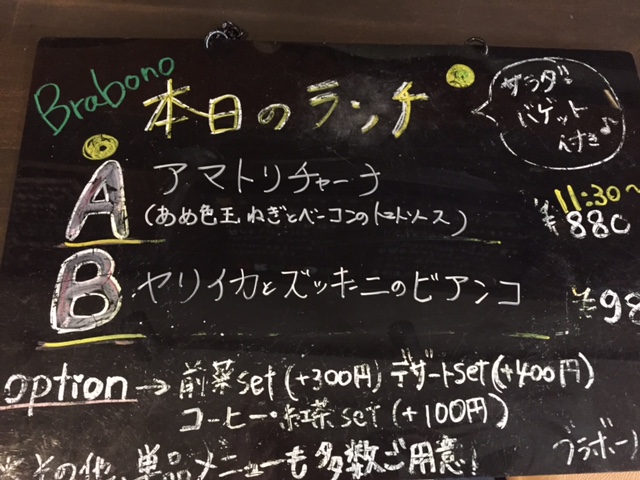 Brabono
本日のランチ
サラダ・
バゲット
付き♪
A アマトリチャーナ
(あめ色玉ねぎとベーコンのトマトソース)
11:30~
¥880
B ヤリイカとズッキーニのビアンコ
¥98
option→前菜set(+300円) デザートset(+400円)
コーヒー・紅茶set(+100円)
その他、単品メニューも多数ご用意!
ブラボー